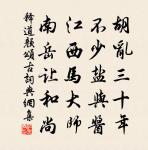 胡亂三十年
不少鹽與醬
江西馬大師
南岳讓和尚
釋道顏頌古詞典網集